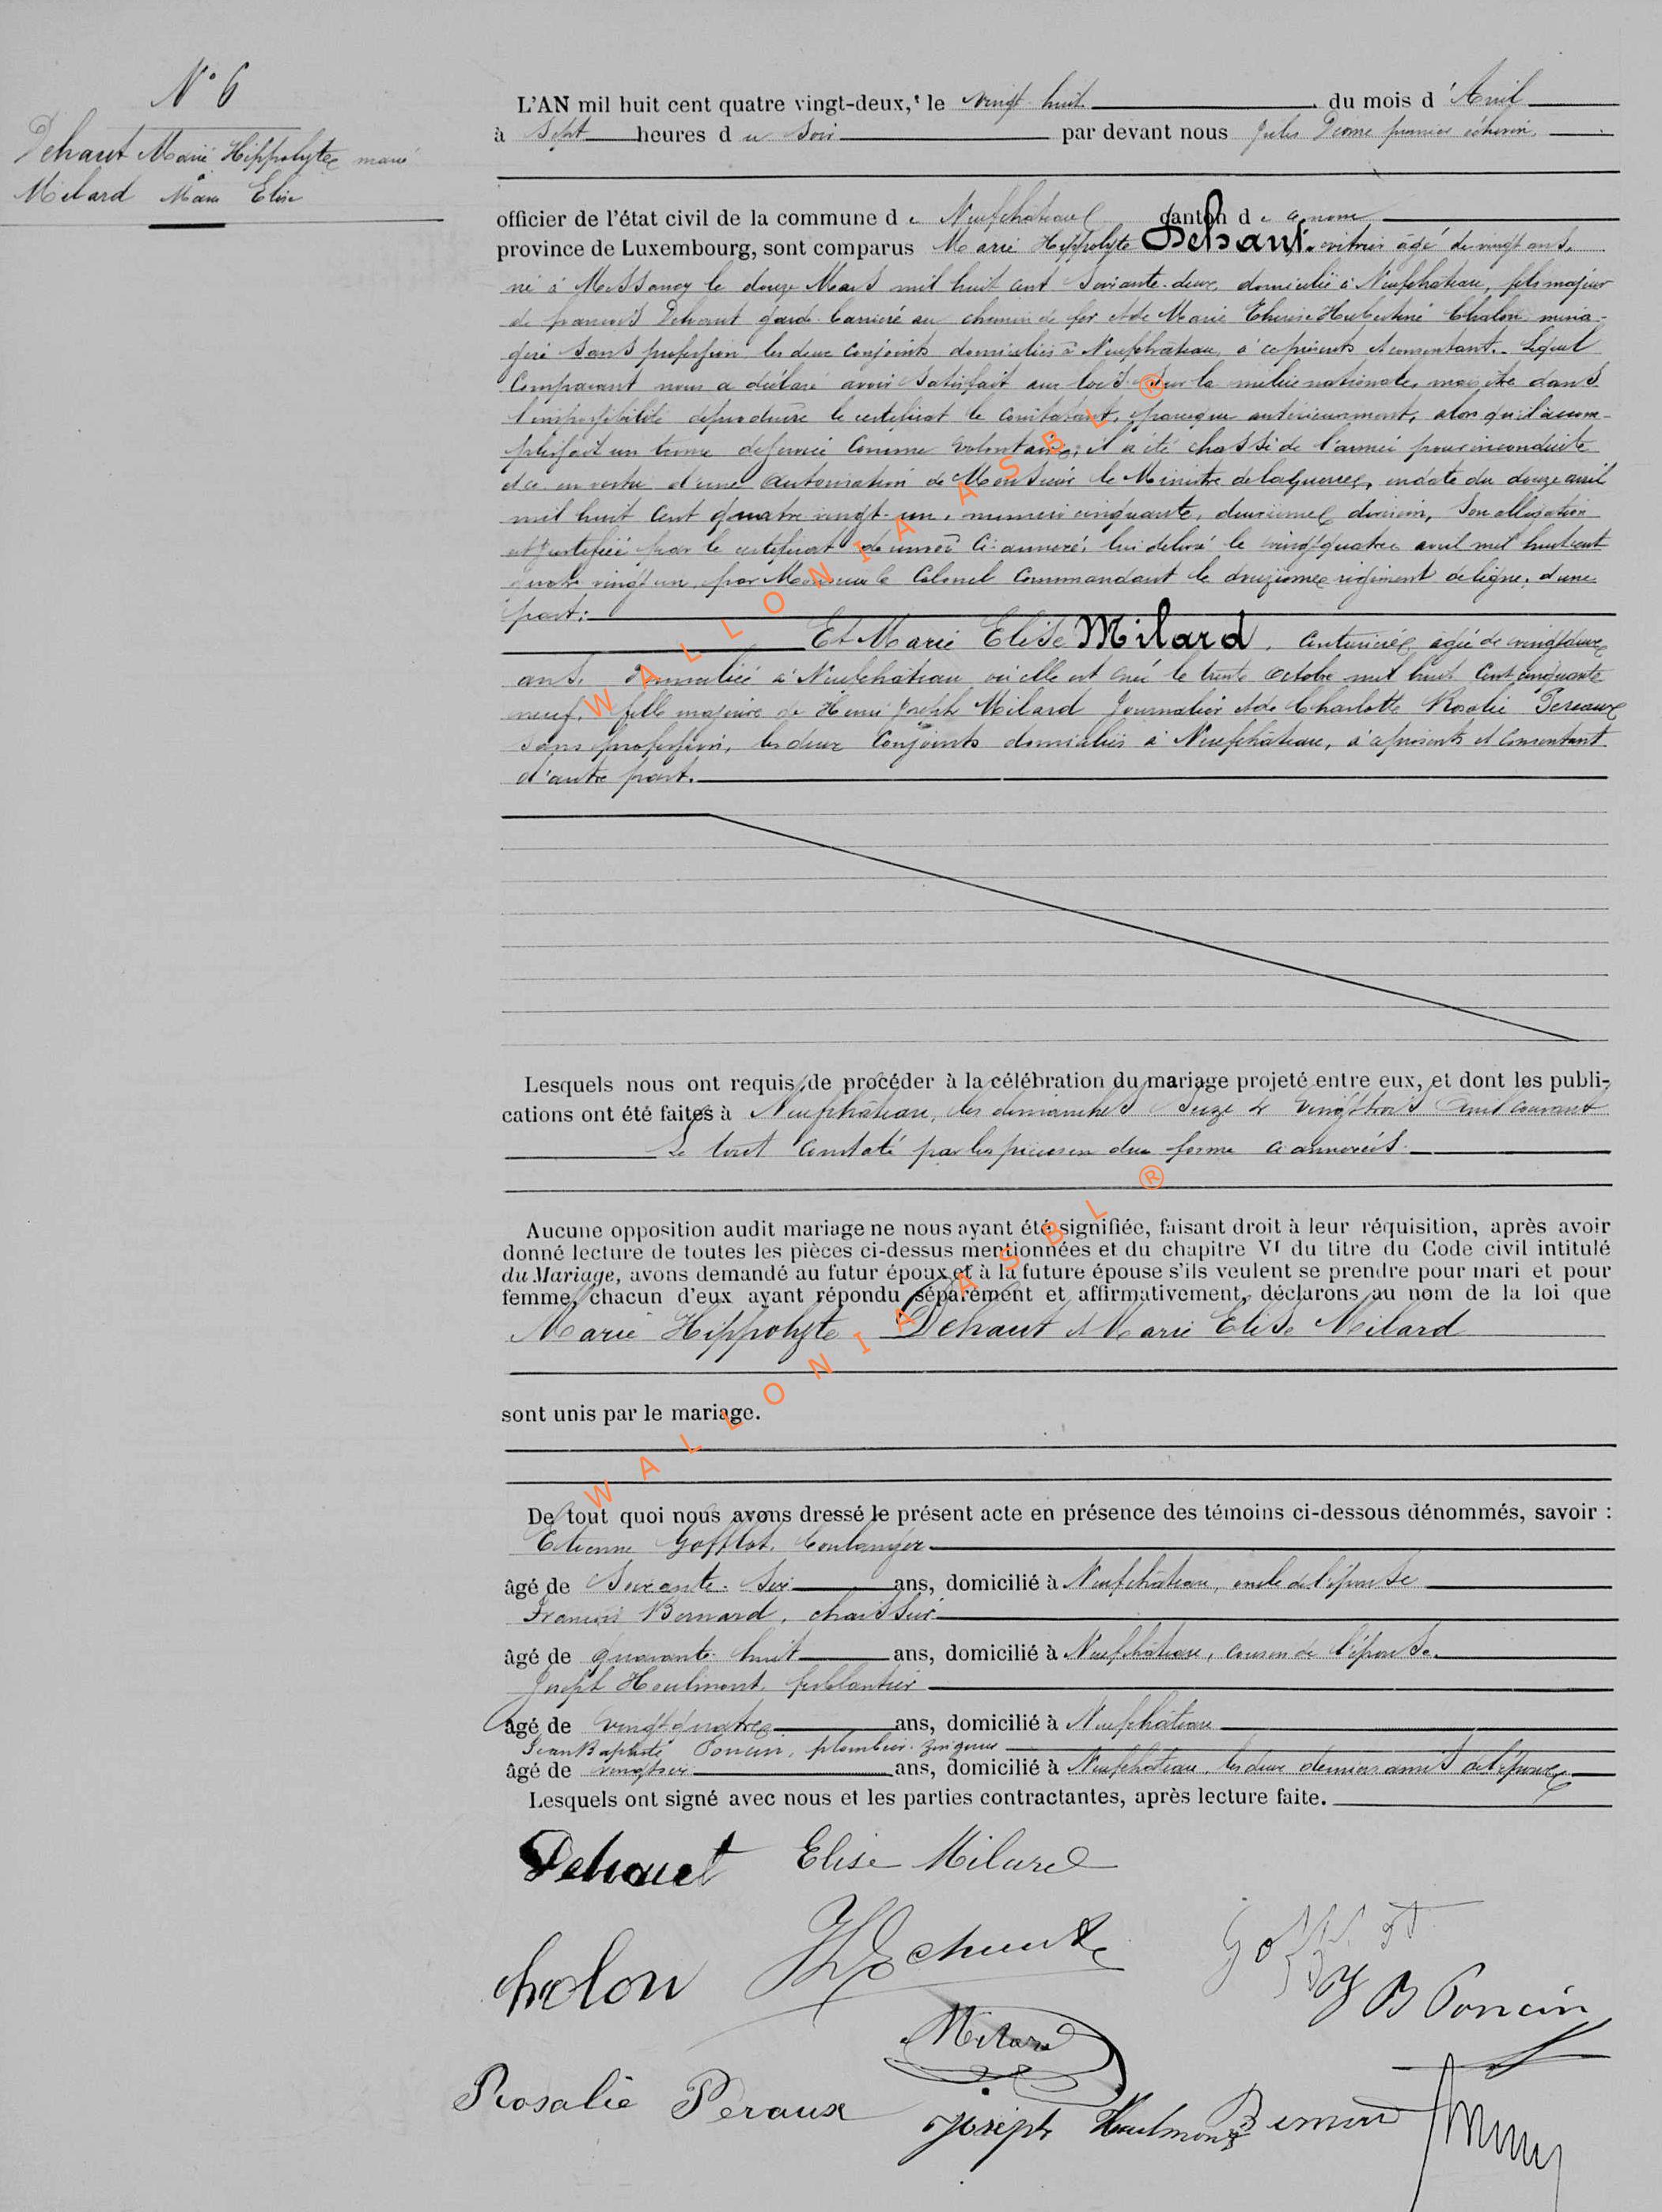 N° 6
Dehaut Marie Hippolyte marié
à
Milard Marie Elise
L'AN mil huit cent quatre vingt-deux, le vingt huit du mois d'Avril
à Sept heures du Soir par devant nous Jules premier échevin,
officier de l'état civil de la commune de Neufchâteau canton de ce nom
province de Luxembourg, sont comparus Marie Hippolyte Dehaut, vitrier âgé de vingt ans,
né à Messancy le douze Mars mil huit cent Soixante-deux, domicilié à Neufchâteau, fils majeur
de françois Dehaut garde-barrière au chemin de fer et de Marie Thérèse Hubertine Chalon ména-
gère Sans profession les deux conjoints domiciliés à Neufchâteau, à ce présents et consentant. Lequel
Comparant nous a déclaré avoir Satisfait aux lois Sur la milice nationale, mais être dans
l'impossibilité de produire le certificat le constatant, parceque antérieurement, alors qu'il accom-
plissait un terme de service comme volontaire, il a été chassé de l'armée pour inconduite
et ce en vertu d'une autorisation de Monsieur le Ministre de la guerre, en date du douze avril
mil huit Cent quatre vingt-un, numéro cinquante, deuxième division, Son allégation
est justifiée par le certificat ci-annexé, lui délivré le vingt quatre avril mil huit cent
quatre vingt un, par Monsieur le Colonel Commandant le régiment de ligne, d'une
part:
Et Marie Elise Milard, Couturière, âgée de vingt deux
ans, domiciliée à Neufchâteau où elle est née le trente Octobre mil huit Cent cinquante
neuf, fille majeure de Henri Joseph Milard Journalier et de Charlotte Rosalie Peraux
Sans profession, les deux Conjoints domiciliés à Neufchâteau, à ce présents et Consentant
d'autre part.
Lesquels nous ont requis de procéder à la célébration du mariage projeté entre eux, et dont les publi-
cations ont été faites à Neufchâteau, les dimanches Seize et Vingt trois Avril courant
Le tout Constaté par les pièces en due forme ci annexées.
Aucune opposition audit mariage ne nous ayant été signifiée, faisant droit à leur réquisition, après avoir
donné lecture de toutes les pièces ci-dessus mentionnées et du chapitre VI du titre du Code civil intitulé
du Mariage, avons demandé au futur époux et à la future épouse s'ils veulent se prendre pour mari et pour
femme, chacun d'eux ayant répondu séparément et affirmativement, déclarons au nom de la loi que
Marie Hippolyte Dehaut et Marie Elise Milard
sont unis par le mariage.
De tout quoi nous avons dressé le présent acte en présence des témoins ci-dessous dénommés, savoir :
Etienne Gofflot, boulanger
âgé de Soixante-Six ans, domicilié à Neufchâteau, oncle de l'épouse
François Bernard, chaisseur
âgé de quarante huit ans, domicilié à Neufchâteau, cousin de l'épouse.
Joseph Houlmont, ferblantier
âgé de vingt quatre ans, domicilié à Neufchâteau
Jean Baptiste Poncin, plombier-zingueur
âgé de vingt six ans, domicilié à Neufchâteau, les deux derniers amis de l'époux
Lesquels ont signé avec nous et les parties contractantes, après lecture faite.
Dehaut Elise Milard
Chalon Gofflot
J B Poncin
Milard
Rosalie Peraux
Joseph Houlmont Bernard
WALLONIA ASBL ®
WALLONIA ASBL ®